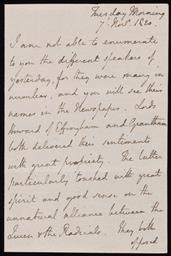 Tuesday Morning
7th Novr. 1820.
I am not able to enumerate
to you the different speakers of
yesterday, for they were many in
number, and you will see their
names in the Newspaper. Lords
Howard of Effingham and Grantham
both delivered their sentiments
with great propriety. The latter
particularly touched with great
spirit and good sense on the
unnatural alliance between the
Queen & the Radicals. They both